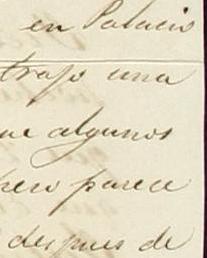 en Palacio
trajo una
que algunos
pero parece
despues de